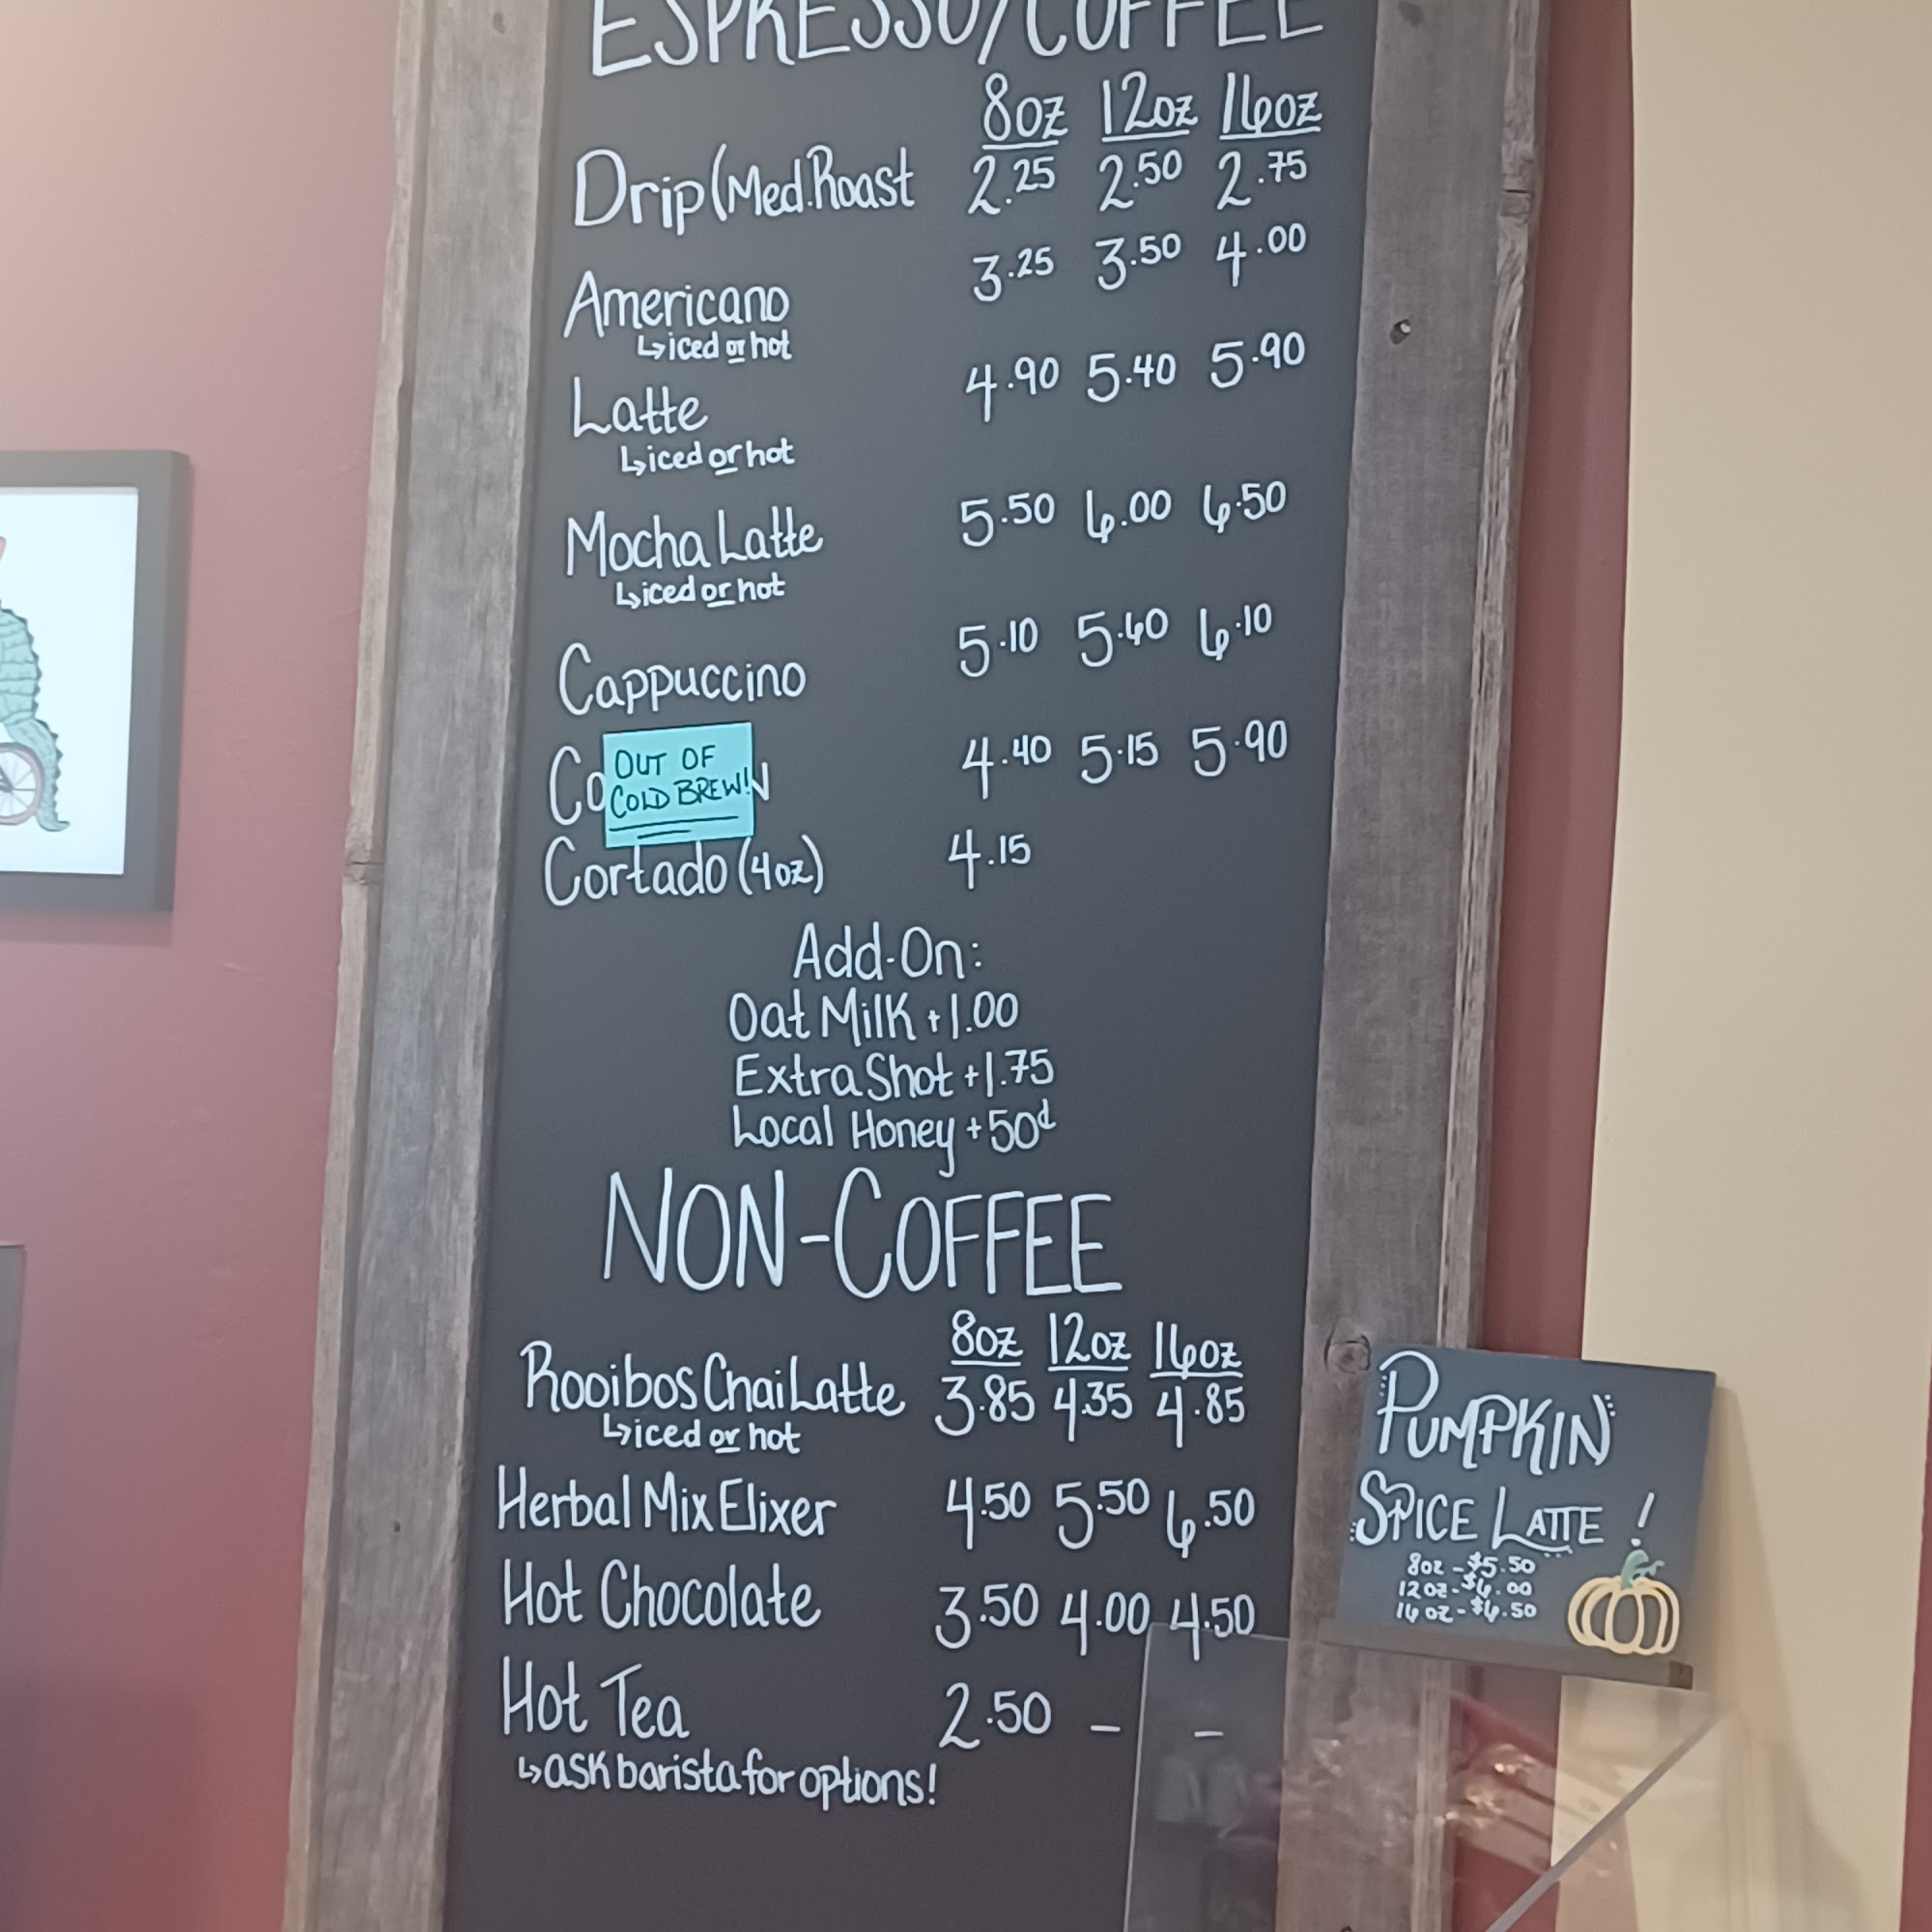 ESPRESSO/COFFEE
8oz 12oz 16oz
Drip (Med. Roast 2.25 2.50 2.75
Americano 3.25 3.50 4.00
↳iced or hot
Latte 4.90 5.40 5.90
↳iced or hot
Mocha Latte 5.50 6.00 6.50
↳iced or hot
Cappuccino 5.10 5.60 6.10
Co 4.40 5.15 5.90
OUT OF
COLD BREW!
Cortado (4oz) 4.15
Add-On:
Oat Milk +1.00
Extra Shot +1.75
Local Honey +50¢
NON-COFFEE
8oz 12oz 16oz
Rooibos Chai Latte 3.85 4.35 4.85
↳iced or hot
Herbal Mix Elixer 4.50 5.50 6.50
Hot Chocolate 3.50 4.00 4.50
Hot Tea 2.50 – –
↳ask barista for options!
PUMPKIN
SPICE LATTE!
8oz - $5.50
12oz - $6.00
16oz - $6.50